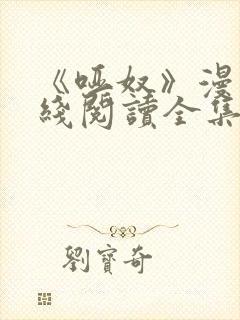 《哑奴》漫
綫閱讀全集
劉寶奇